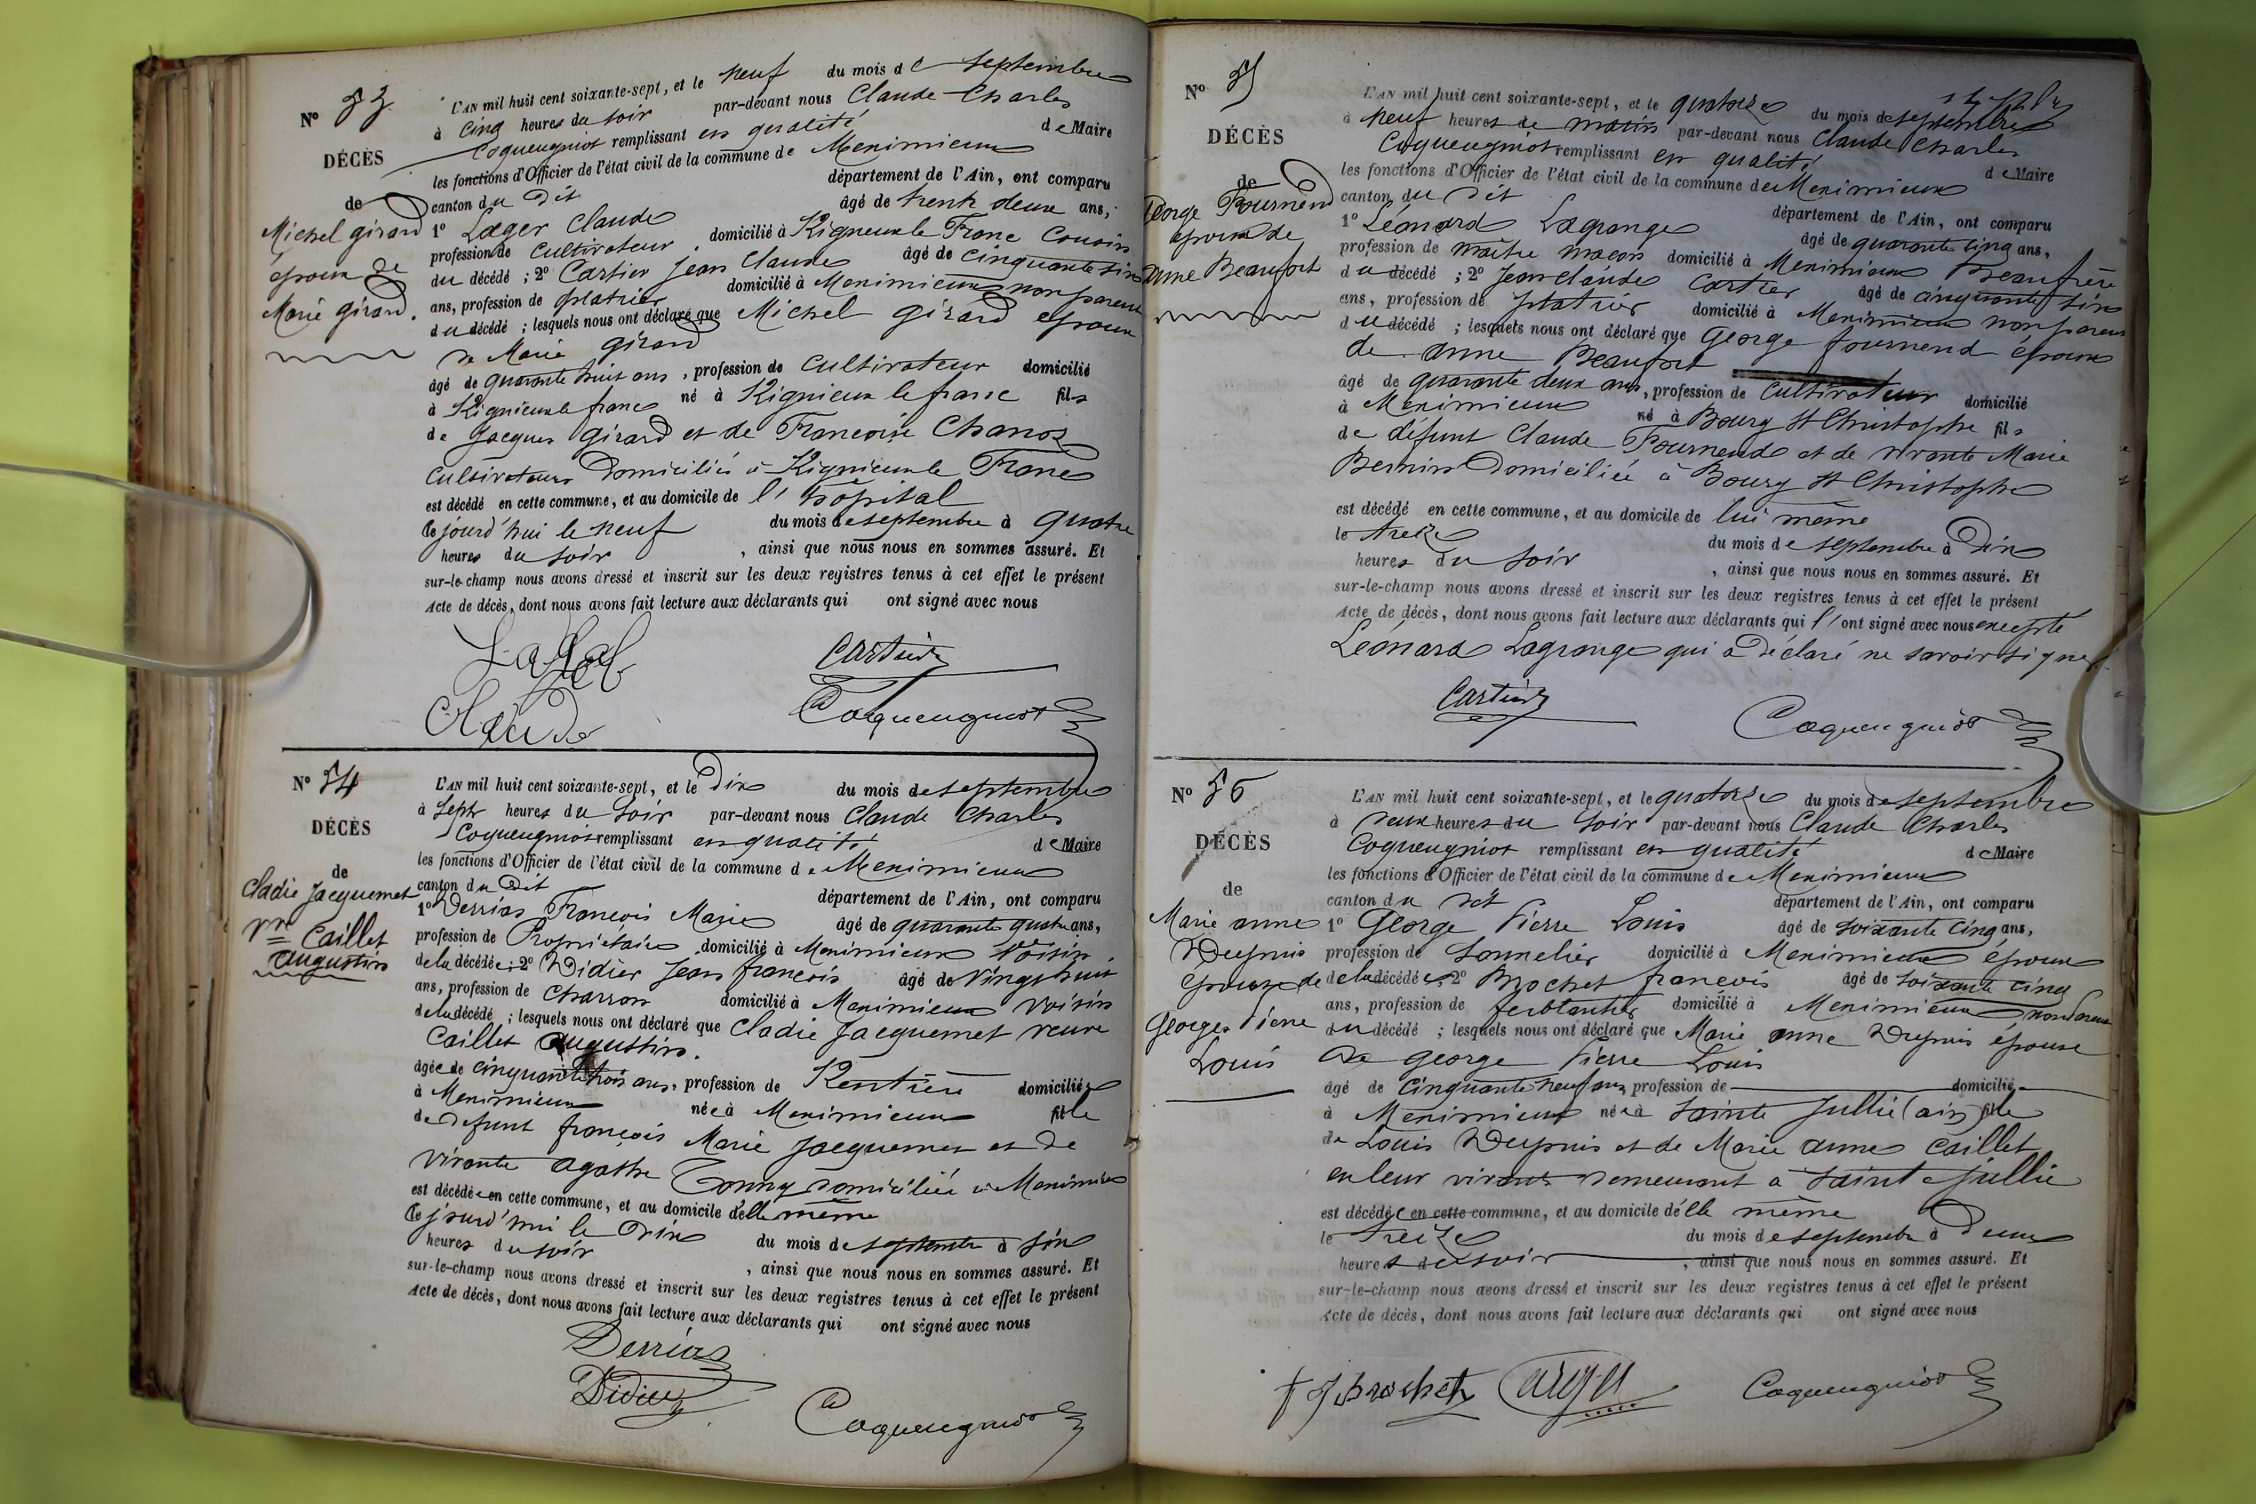 N° 53
DÉCÈS
de
Michel girard
époux de
Marie girard.
L'AN mil huit cent soixante-sept, et le neuf du mois de septembre
à cinq heures du soir par-devant nous Claude Charles
Coqueugniot remplissant en qualité de Maire
les fonctions d'Officier de l'état civil de la commune de Meximieux
canton du dit département de l'Ain, ont comparu
1° Lager Claude âgé de trente deux ans,
profession de cultivateur domicilié à Rignieux le Franc Cousin
du décédé ; 2° Cartier jean Claude âgé de cinquante six
ans, profession de platrier domicilié à Meximieux non parent
du décédé ; lesquels nous ont déclaré que Michel girard époux
de Marie girard
âgé de quarante huit ans, profession de cultivateur domicilié
à Rignieux le franc né à Rignieux le franc fils
de Jacques girard et de Francoise Chanoz
cultivateurs domiciliés à Rignieux le Franc
est décédé en cette commune, et au domicile de l'hôpital
Ce jourd'hui le neuf du mois de septembre à quatre
heures du soir, ainsi que nous nous en sommes assuré. Et
sur-le-champ nous avons dressé et inscrit sur les deux registres tenus à cet effet le présent
Acte de décès, dont nous avons fait lecture aux déclarants qui ont signé avec nous
Cartier
Claude
Coqueugniot
N° 54
DÉCÈS
de
Cladie Jacquemet
Vve Caillet
augustin
L'AN mil huit cent soixante-sept, et le Dix du mois de septembre
à sept heures du soir par-devant nous Claude Charles
Coqueugniot remplissant en qualité de Maire
les fonctions d'Officier de l'état civil de la commune de Meximieux
canton du dit département de l'Ain, ont comparu
1° Derrias François Marie âgé de quarante quatre ans,
profession de Propriétaire domicilié à Meximieux Voisin
de la décédée ; 2° Didier Jean françois âgé de Vingt huit
ans, profession de charron domicilié à Meximieux Voisin
de la décédé ; lesquels nous ont déclaré que Cladie Jacquemet veuve
Caillet augustin.
âgée de cinquante trois ans, profession de Rentière domiciliée
à Meximieux née à Meximieux fille
de defunt françois Marie Jacquemet et de
vivante agathe Tonny domiciliée à Meximieux
est décédée en cette commune, et au domicile d'elle même
Ce jourd'hui le Dix du mois de septembre à six
heures du soir, ainsi que nous nous en sommes assuré. Et
sur-le-champ nous avons dressé et inscrit sur les deux registres tenus à cet effet le présent
Acte de décès, dont nous avons fait lecture aux déclarants qui ont signé avec nous
Derrias
Didier
Coqueugniot
N° 55
DÉCÈS
de
George Fournend
époux de
Anne Beaufort
L'AN mil huit cent soixante-sept, et le quatorze du mois de septembre
à neuf heures de matin par-devant nous Claude Charles
Coqueugniot remplissant en qualité de Maire
les fonctions d'Officier de l'état civil de la commune de Meximieux
canton du dit département de l'Ain, ont comparu
1° Léonard Lagrange âgé de quarante cinq ans,
profession de maître maçon domicilié à Meximieux Beaufrère
du décédé ; 2° Jean claude Cartier âgé de cinquante six
ans, profession de platrier domicilié à Meximieux non parent
du décédé ; lesquels nous ont déclaré que George fournend époux
de anne Beaufort
âgé de quarante deux ans, profession de cultivateur domicilié
à Meximieux né à Bourg St Christophe fils
de défunt Claude Fournend et de vivante Marie
Bernin domiciliée à Bourg St Christophe
est décédé en cette commune, et au domicile de lui même
le treize du mois de septembre à Dix
heures du soir, ainsi que nous nous en sommes assuré. Et
sur-le-champ nous avons dressé et inscrit sur les deux registres tenus à cet effet le présent
Acte de décès, dont nous avons fait lecture aux déclarants qui l'ont signé avec nous excepté
Léonard Lagrange qui a déclaré ne savoir signer
Cartier
Coqueugniot
N° 56
DÉCÈS
de
Marie anne
Dupuis
épouse de
Georges Pierre
Louis
L'AN mil huit cent soixante-sept, et le quatorze du mois de septembre
à deux heures du soir par-devant nous Claude Charles
Coqueugniot remplissant en qualité de Maire
les fonctions d'Officier de l'état civil de la commune de Meximieux
canton du dit département de l'Ain, ont comparu
1° George Pierre Louis âgé de soixante cinq ans,
profession de Tonnelier domicilié à Meximieux époux
de la décédée ; 2° Brochet françois âgé de soixante cinq
ans, profession de ferblantier domicilié à Meximieux non parent
du décédé ; lesquels nous ont déclaré que Marie anne Dupuis épouse
de George Pierre Louis
âgé de cinquante neuf ans, profession de domicilié
à Meximieux née à Sainte Jullie (ain) fille
de Louis Dupuis et de Marie anne Caillet
en leur vivant demeurant à Sainte Jullie
est décédée en cette commune, et au domicile d'elle même
le treize du mois de septembre à deux
heures du soir, ainsi que nous nous en sommes assuré. Et
sur-le-champ nous avons dressé et inscrit sur les deux registres tenus à cet effet le présent
Acte de décès, dont nous avons fait lecture aux déclarants qui ont signé avec nous
f Brochet
Coqueugniot